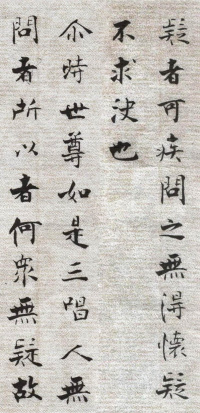 疑者可疾問之無得懷疑
不求決也
尒時世尊如是三唱人無
問者所以者何眾無疑故